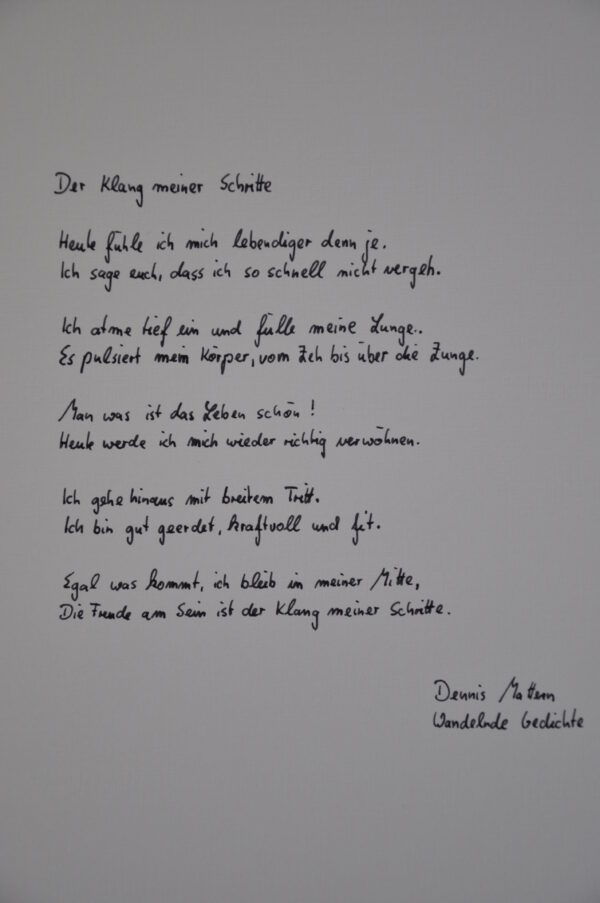 Der Klang meiner Schritte
Heute fühle ich mich lebendiger denn je.
Ich sage euch, dass ich so schnell nicht vergeh.
Ich atme tief ein und fülle meine Lunge.
Es pulsiert mein Körper, vom Zeh bis über die Zunge.
Man was ist das Leben schön!
Heute werde ich mich wieder richtig verwöhnen.
Ich gehe hinaus mit breitem Tritt.
Ich bin gut geerdet, kraftvoll und fit.
Egal was kommt, ich bleib in meiner Mitte,
Die Freude am Sein ist der Klang meiner Schritte.
Dennis Mattern
Wandelnde Gedichte